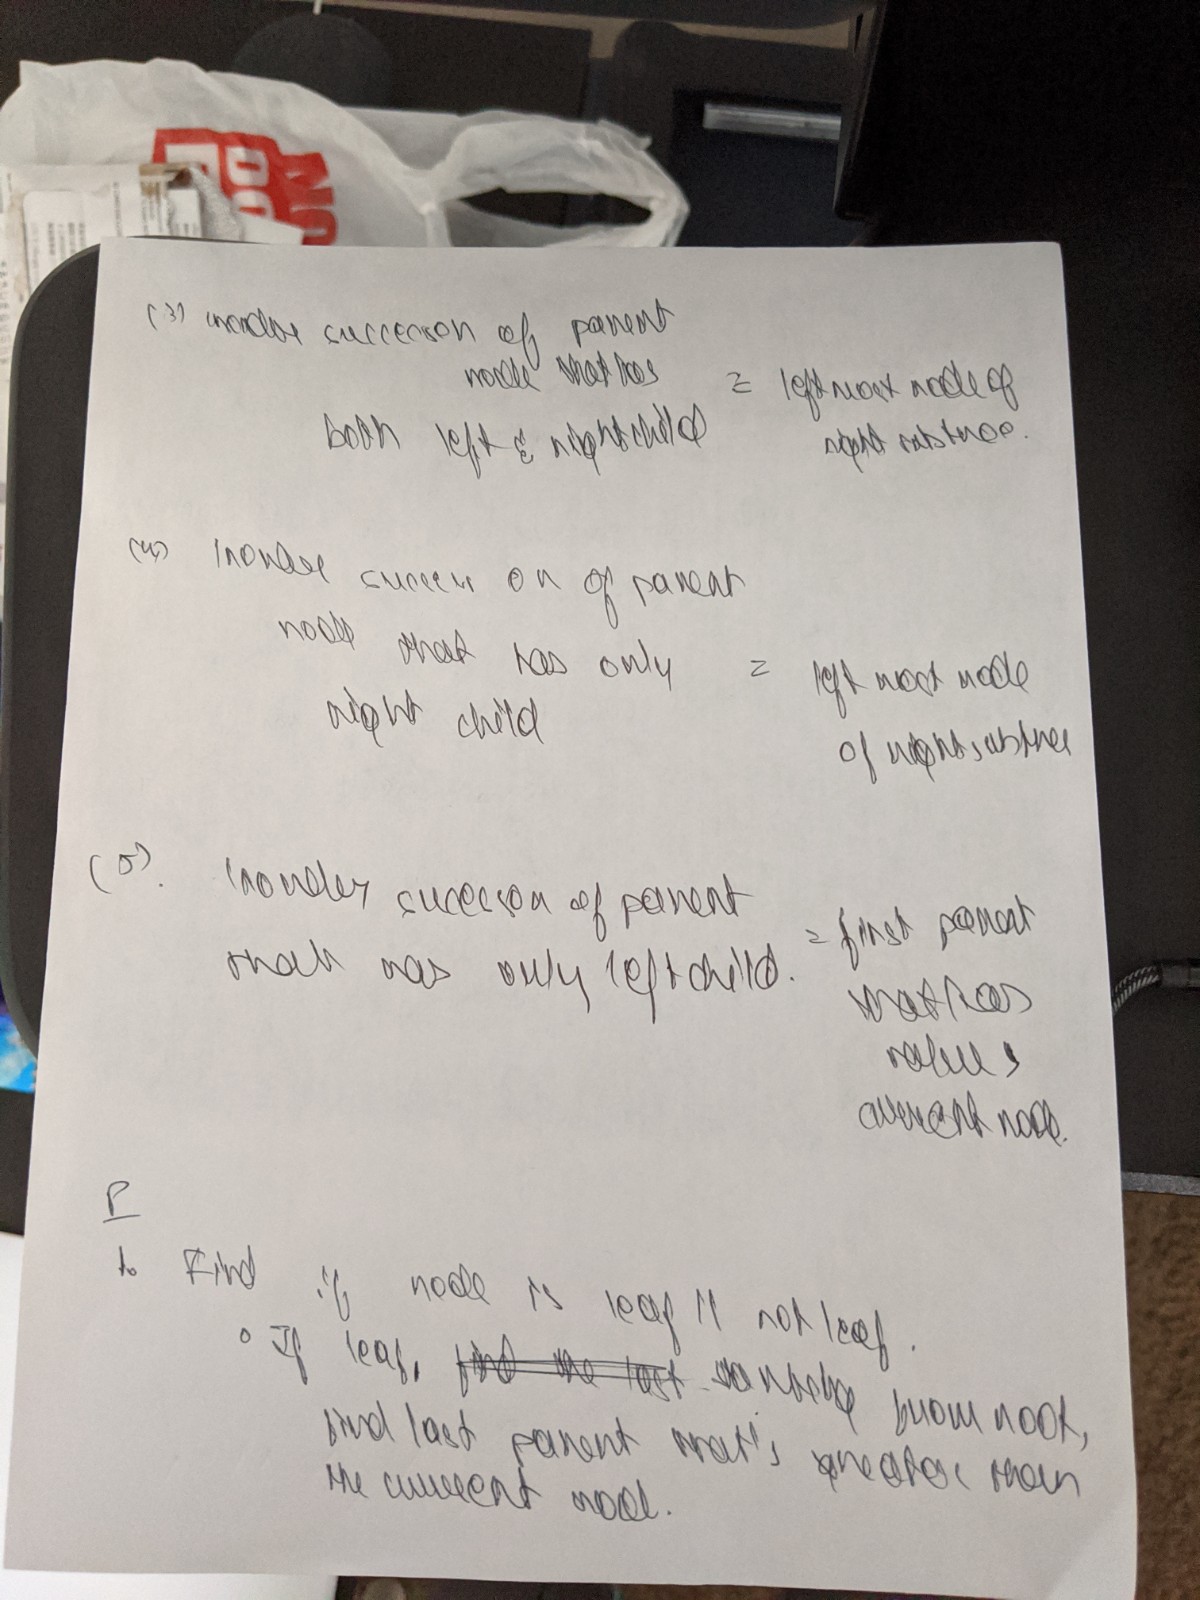 NO
DO
(3) inorder successor of parent
node that has
both left & right child
= left most node of
right subtree.
(4) Inorder successor of parent
node that has only
right child
= left most node
of right subtree
(5). Inorder successor of parent
that has only left child.
= first parent
that has
value >
current node.
P
1. Find if node is leaf || not leaf.
If leaf, find the last starting from root,
find last parent that's greater than
the current node.